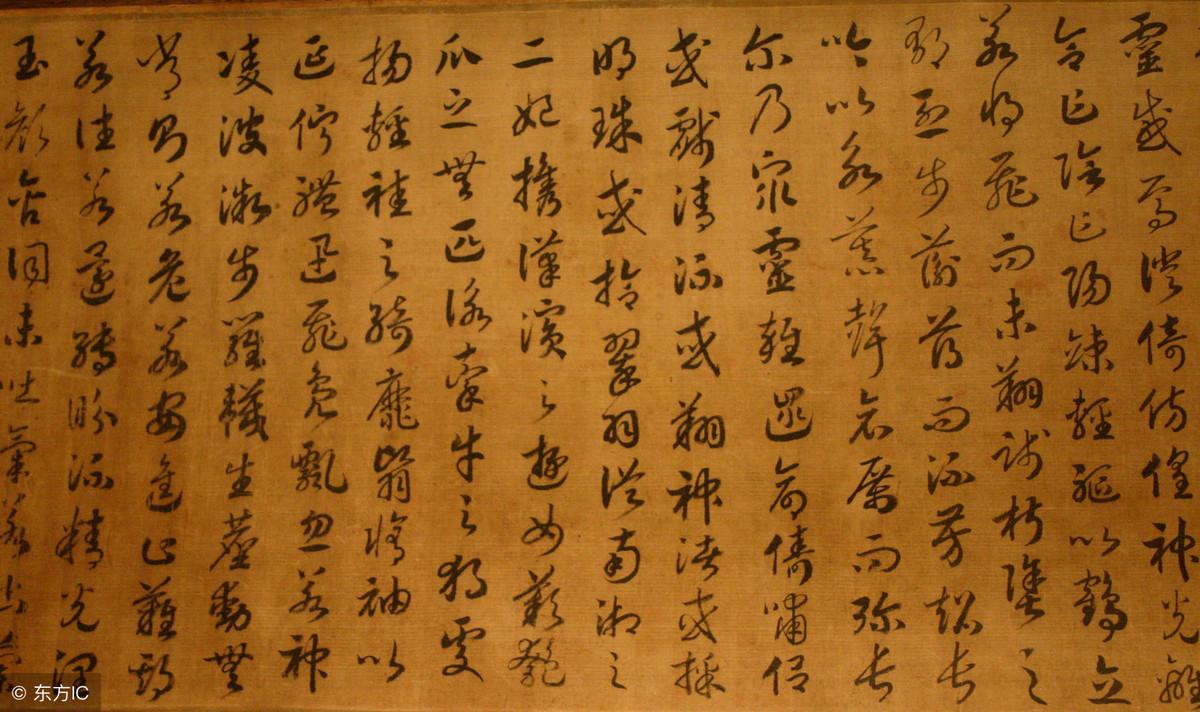 靈感焉徙倚傍偟神光離
合乍陰乍陽竦輕軀以鶴立
若將飛而未翔踐椒塗之
郁烈步蘅薄而流芳超長
吟以永慕聲哀厲而彌長
尔乃衆靈雜遝命儔嘯侶
或戲清流或翔神渚或採
明珠或拾翠羽從南湘之
二妃攜漢濱之遊女歎匏
瓜之無匹詠牽牛之獨處
揚輕袿之綺靡翳脩袖以
延佇體迅飛鳧飄忽若神
凌波微步羅韈生塵動無
常則若危若安進止難期
若往若還轉眄流精光潤
玉顏含詞未吐氣若幽蘭
© 东方IC